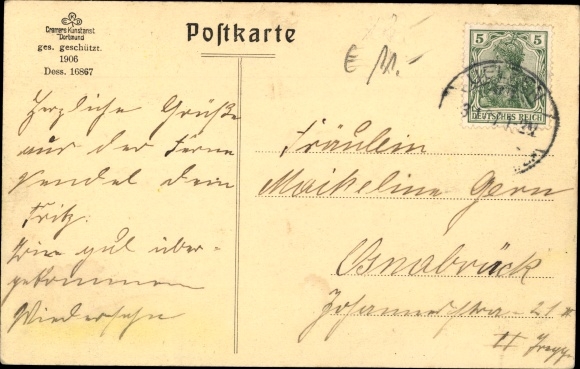 Cramers Kunstanst.
Dortmund
ges. geschützt.
1906
Dess. 16867
Postkarte
€ 11.-
5 5
DEUTSCHES REICH
Herzliche Grüße
aus der Ferne
sendet dein
Fritz.
gut über-
gekommen
Wiedersehn
Fräulein
Gern
Osnabrück
21
II